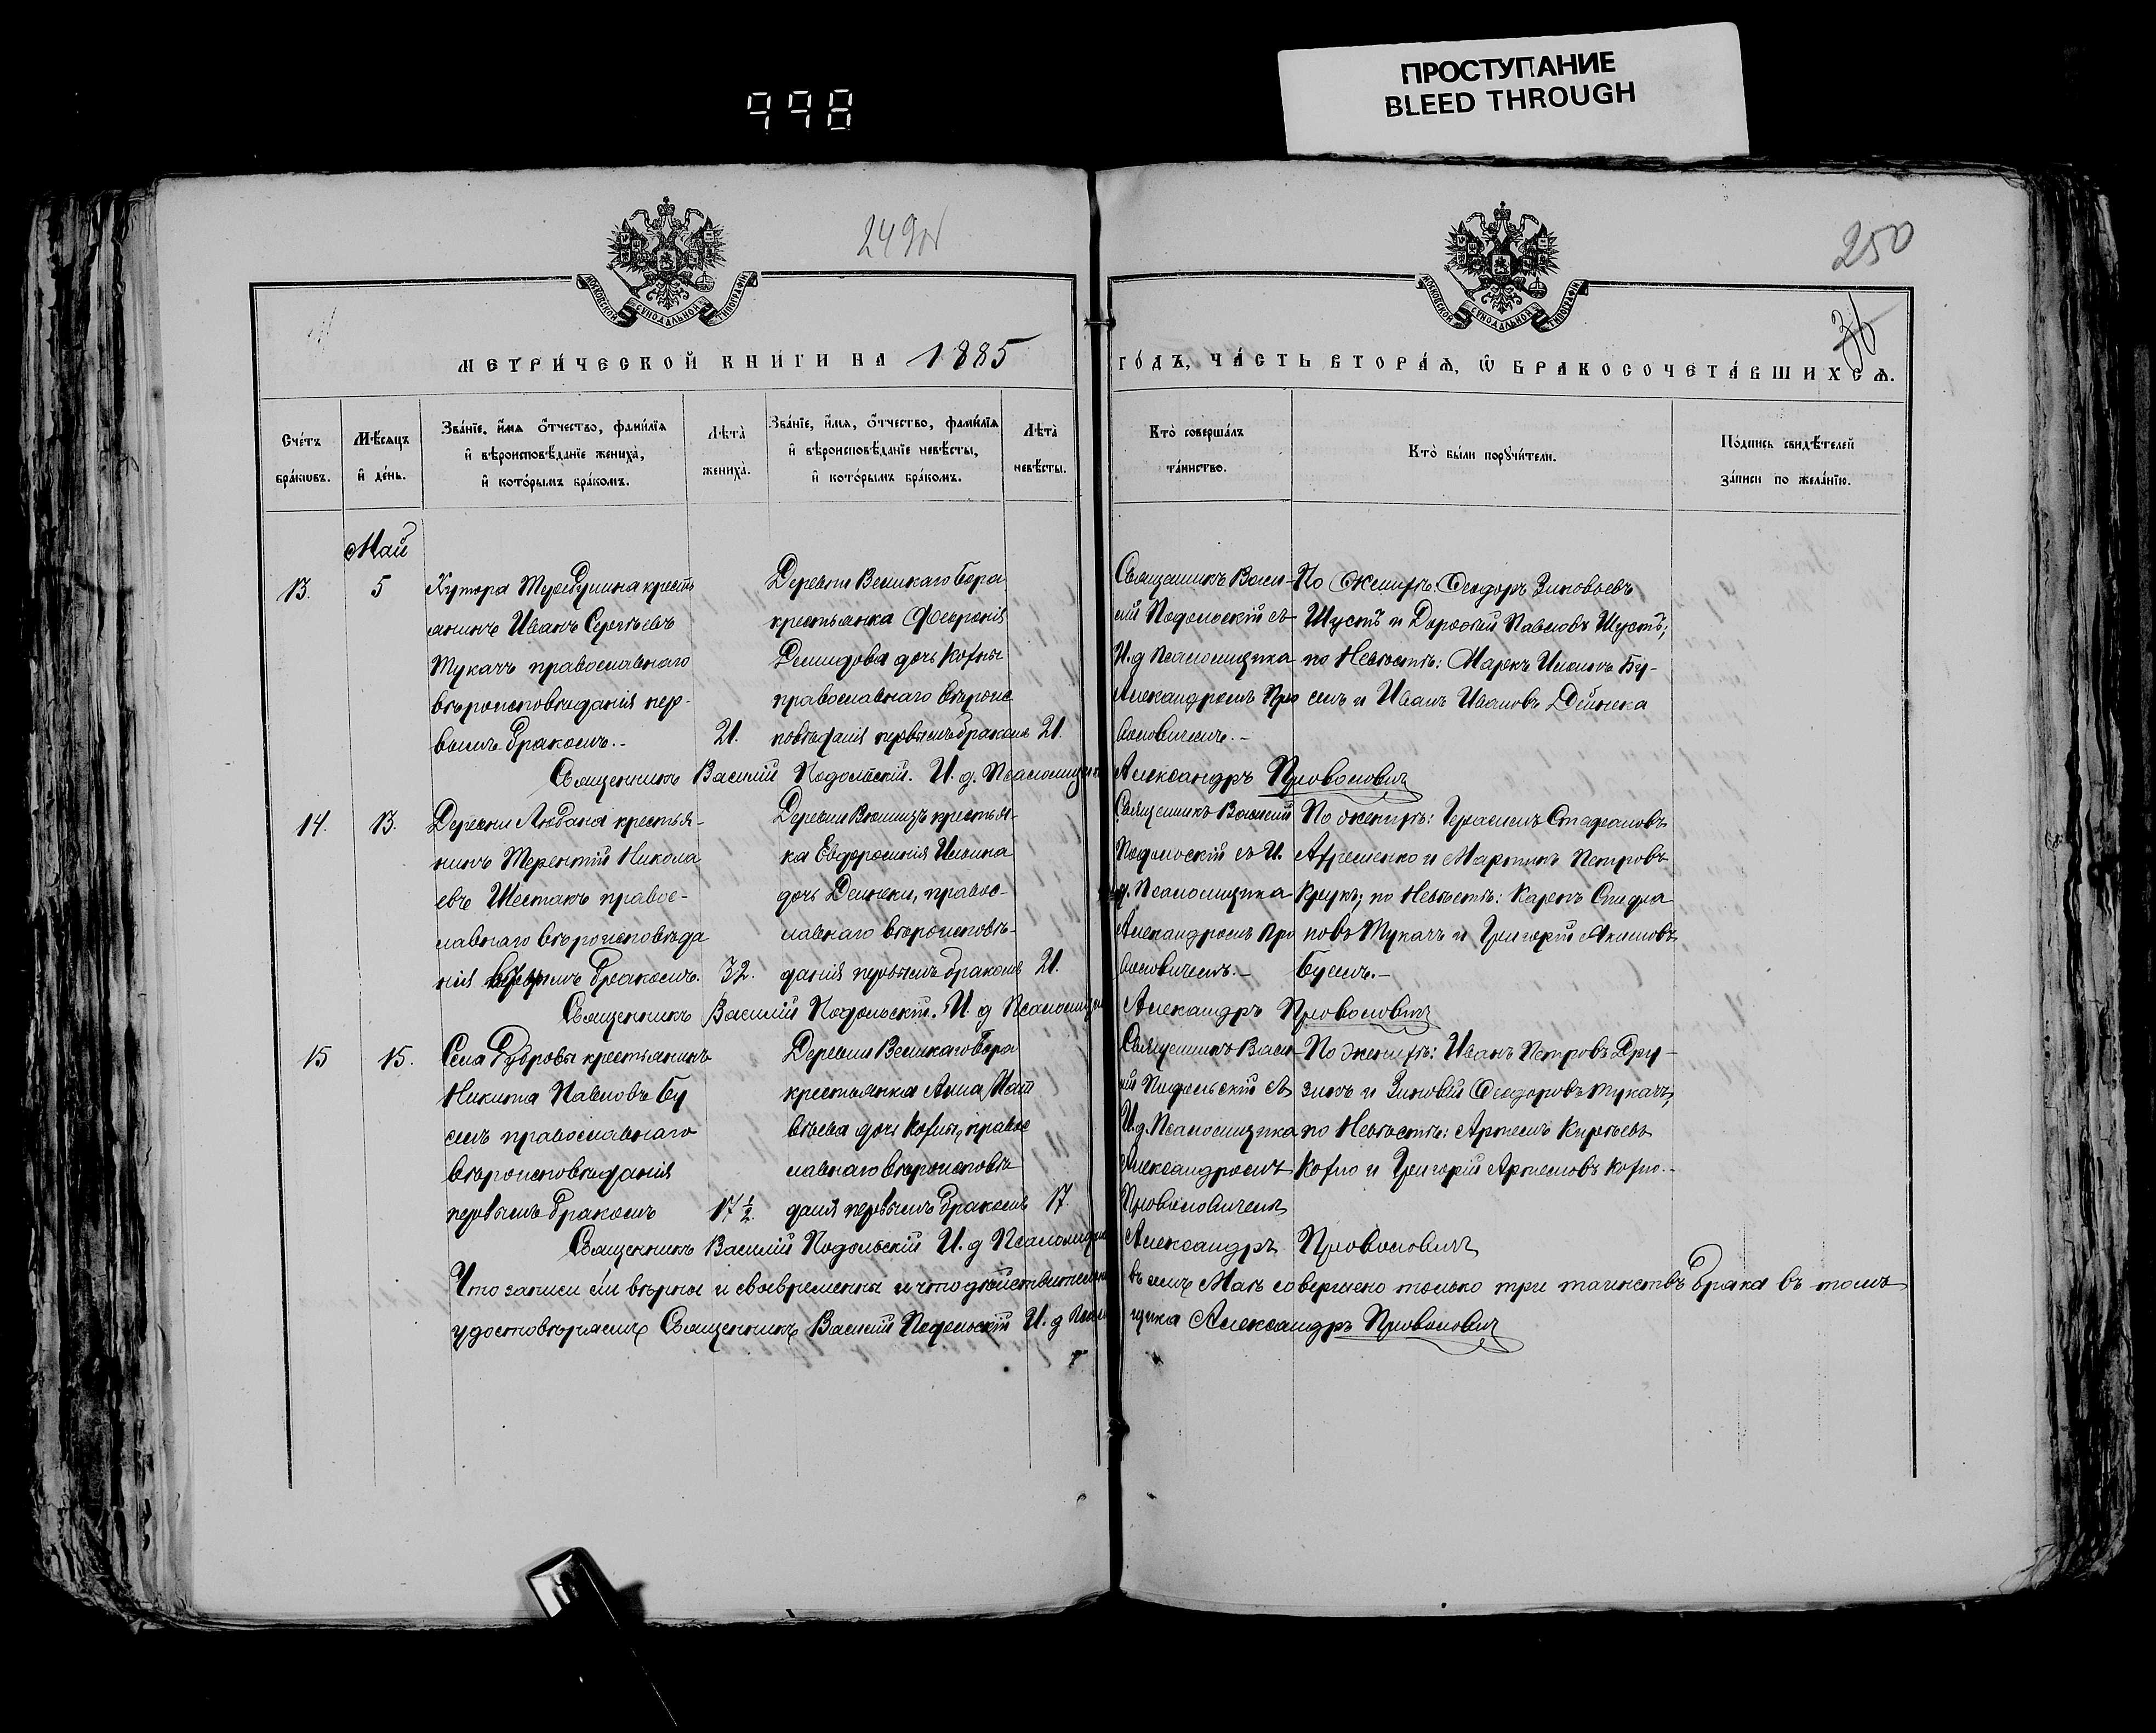 998
ПРОСТУПАНИЕ
BLEED THROUGH
250
МОСКОВСКОЙ СУНОДАЛЬНОЙ ТИПОГРАФІИ
МОСКОВСКОЙ СУНОДАЛЬНОЙ ТИПОГРАФІИ
МЕТРИ́ЧЕСКОЙ КНИ́ГИ НА 1885
ГО́ДЪ, ЧА́СТЬ ВТОРА́Ѧ, Ѡ҆ БРАКОСОЧЕТА́ВШИХСѦ.
Сче́тъ
бра́кѡвъ.
Мѣ́сяцъ
и҆ де́нь.
Зва́нїе, и҆́мѧ ѻ҆́тчество, фами́лїѧ
и҆ вѣроисповѣ́данїе жениха̀,
и҆ кото́рымъ бра́комъ.
Лѣта̀
жениха̀.
Зва́нїе, и҆́мѧ, ѻ҆́тчество, фами́лїѧ
и҆ вѣроисповѣ́данїе невѣ́сты,
и҆ кото́рымъ бра́комъ.
Лѣта̀
невѣ́сты.
Кто̀ соверша́лъ
та́инство.
Кто̀ бы́ли порꙋчи́тели.
По́дпись свидѣ́телей
за́писи по жела́нїю.
Май
13.
5
крестья
анинъ Иванъ Сергѣевъ
Тукачъ православнаго
вѣроисповѣданія пер-
вымъ бракомъ.-
21.
Деревни Великаго бора
крестьянка Февронія
Демидова дочь
православнаго вѣроис
повѣданія первымъ бракомъ
21.
Священникъ Васи-
лій Подольскій съ
И. д Псаломщика
Александромъ Про
воловичемъ.-
По Женихѣ: Феодоръ Зиновьевъ
Шустъ и Дорофей Павловъ Шустъ;
по Невѣстѣ: Маркъ Бу-
и Иванъ Ивановъ Дейнека
Священникъ Василій Подольскій. И. д. Псаломщика Александръ Проволовичъ
14.
13.
Деревни Любана крестья-
нинъ Терентій Никола
евъ Шестакъ правос-
лавнаго вѣроисповѣда
нія бракомъ.
32.
Деревни крестья-
ка Евфросинія Ильина
дочь Дейнеки, правос-
лавнаго вѣроисповѣ-
данія первымъ бракомъ
21.
Священникъ Василій
Подольскій съ И.
д. Псаломщика
Александромъ Про
воловичемъ.-
По женихѣ: Герасимъ Стафановъ
и Мартинъ Петровъ
Крукъ; по Невѣстѣ: Карпъ
новъ Тукачъ и Григорій Акимовъ
Священникъ Василій Подольскій. И. д Псаломщика Александръ Проволовичъ
15
15.
Села Дубровы крестьянинъ
Никита Павловъ Бу
православнаго
вѣроисповѣданія
первымъ бракомъ
17 ½.
Деревни Великаго бора
крестьянка Анна Мат
вѣева дочь правос
лавнаго вѣроисповѣ
данія первымъ бракомъ
17.
Священникъ Васи-
лій Подольскій съ
И. д. Псаломщика
Александромъ
Проволовичемъ
По женихѣ: Иванъ Петровъ Дру-
и Зиновій Феодоровъ Тукачъ,
по Невѣстѣ: Артемъ Кирѣевъ
и Григорій Артемовъ
Священникъ Василій Подольскій И. д Псаломщика Александръ Проволовичъ
Что записи сіи вѣрны и своевременны и что дѣйствительно въ семъ Маѣ совершено только три таинствъ брака въ томъ
удостовѣряемъ Священникъ Василій Подольскій И. д Псаломщика Александръ Проволовичъ